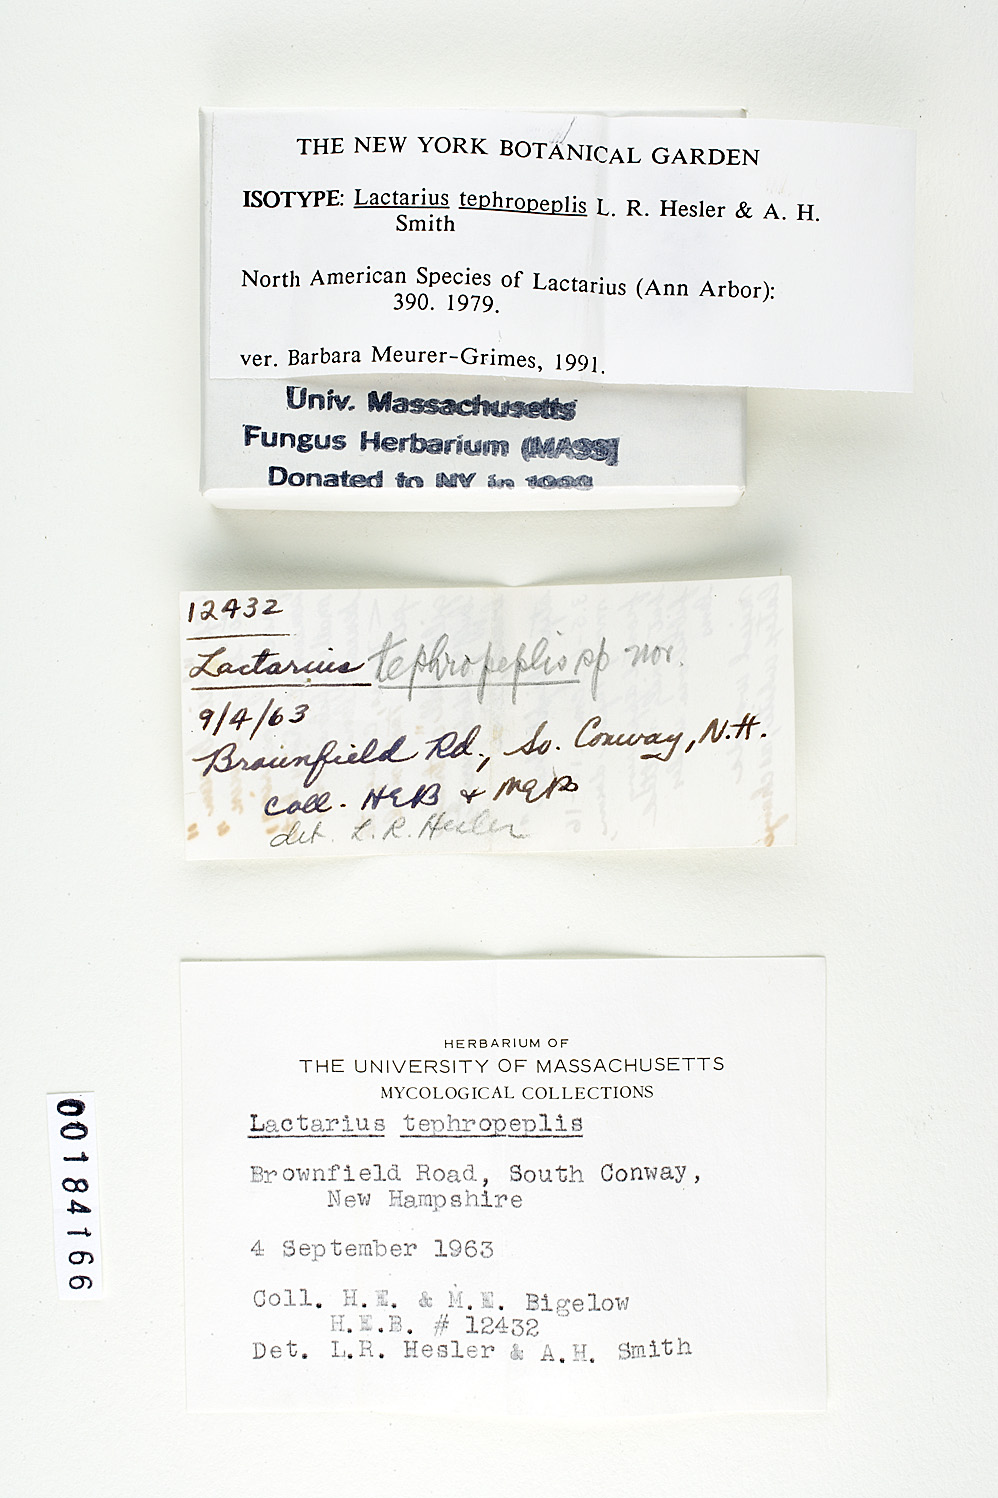 THE NEW YORK BOTANICAL GARDEN
ISOTYPE: Lactarius tephropeplis L. R. Hesler & A. H.
Smith
North American Species of Lactarius (Ann Arbor):
390. 1979.
ver. Barbara Meurer-Grimes, 1991.
Univ. Massachusetts
Fungus Herbarium (MASS)
Donated to NY in
12432
Lactarius tephropeplis sp nov.
9/4/63
Brownfield Rd, So. Conway, N.H.
Coll. HEB & MEB
det. L. R. Hesler
HERBARIUM OF
THE UNIVERSITY OF MASSACHUSETTS
MYCOLOGICAL COLLECTIONS
Lactarius tephropeplis
Brownfield Road, South Conway,
New Hampshire
4 September 1963
Coll. H.E. & M.E. Bigelow
H.E.B. # 12432
Det. L.R. Hesler & A.H. Smith
00184166